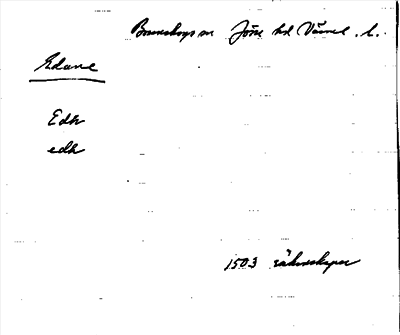 Brunskogs sn Jösse hd Värml. l.
Edane
Edh
edh
1503 räkenskaper